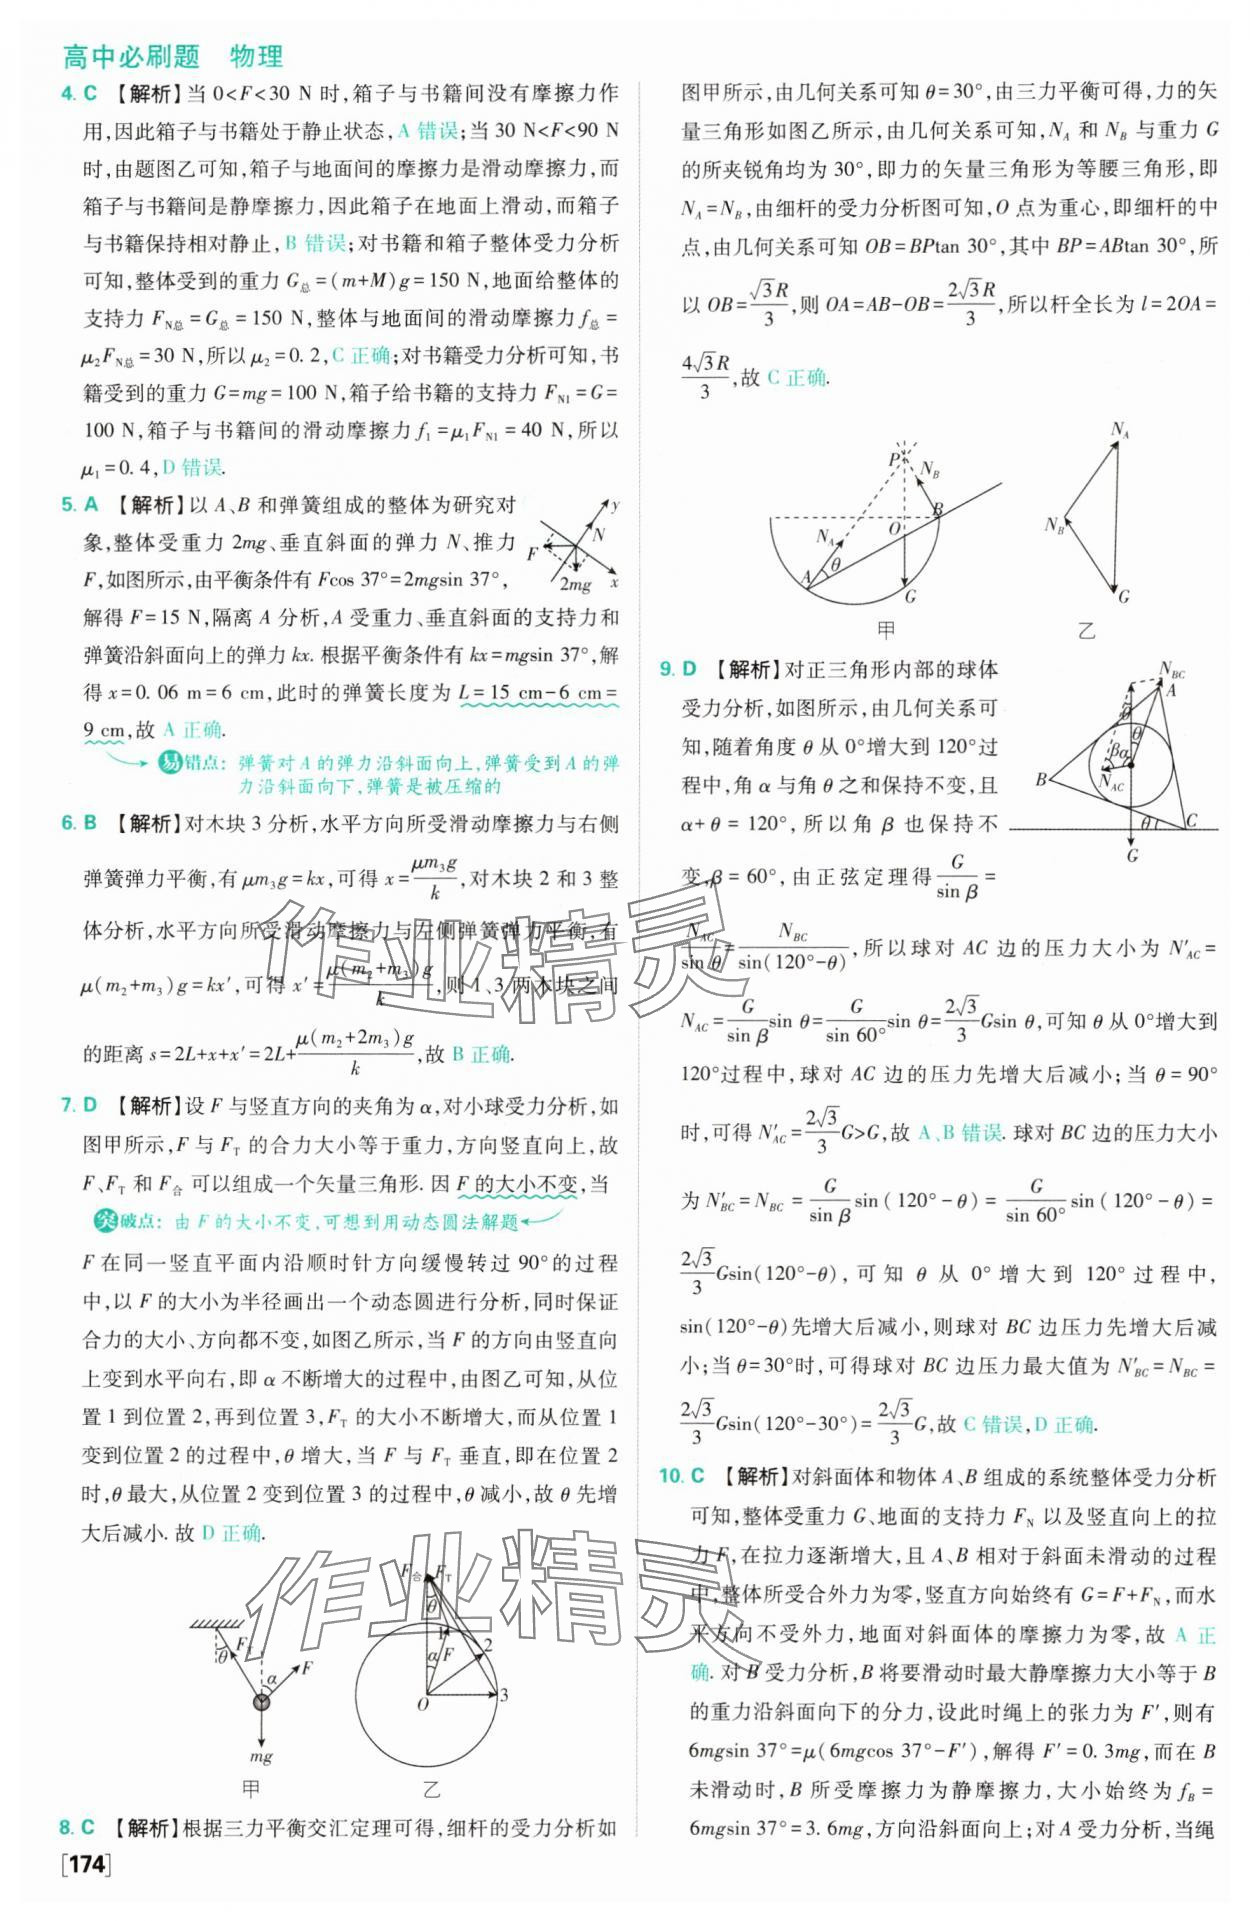 高中必刷题 物理
4. C 【解析】当 0<F<30 N 时,箱子与书籍间没有摩擦力作
用,因此箱子与书籍处于静止状态,A 错误;当 30 N<F<90 N
时,由题图乙可知,箱子与地面间的摩擦力是滑动摩擦力,而
箱子与书籍间是静摩擦力,因此箱子在地面上滑动,而箱子
与书籍保持相对静止,B 错误;对书籍和箱子整体受力分析
可知,整体受到的重力 G总=(m+M)g=150 N,地面给整体的
支持力 FN总=G总=150 N,整体与地面间的滑动摩擦力 f总=
μ₂FN总=30 N,所以 μ₂=0.2,C 正确;对书籍受力分析可知,书
籍受到的重力 G=mg=100 N,箱子给书籍的支持力 FN1=G=
100 N,箱子与书籍间的滑动摩擦力 f₁=μ₁FN1=40 N,所以
μ₁=0.4,D 错误.
5. A 【解析】以 A、B 和弹簧组成的整体为研究对
象,整体受重力 2mg、垂直斜面的弹力 N、推力
F,如图所示,由平衡条件有 Fcos 37°=2mgsin 37°,
解得 F=15 N,隔离 A 分析,A 受重力、垂直斜面的支持力和
弹簧沿斜面向上的弹力 kx. 根据平衡条件有 kx=mgsin 37°,解
得 x=0.06 m=6 cm,此时的弹簧长度为 L=15 cm-6 cm=
9 cm,故 A 正确.
易错点: 弹簧对 A 的弹力沿斜面向上,弹簧受到 A 的弹
力沿斜面向下,弹簧是被压缩的
y
N
F
2mg
x
6. B 【解析】对木块 3 分析,水平方向所受滑动摩擦力与右侧
弹簧弹力平衡,有 μm₃g=kx,可得 x=μm₃g/k,对木块 2 和 3 整
体分析,水平方向所受滑动摩擦力与左侧弹簧弹力平衡,有
μ(m₂+m₃)g=kx′,可得 x′=μ(m₂+m₃)g/k,则 1、3 两木块之间
的距离 s=2L+x+x′=2L+μ(m₂+2m₃)g/k,故 B 正确.
7. D 【解析】设 F 与竖直方向的夹角为 α,对小球受力分析,如
图甲所示,F 与 FT 的合力大小等于重力,方向竖直向上,故
F、FT 和 F合 可以组成一个矢量三角形. 因 F 的大小不变,当
突破点: 由 F 的大小不变,可想到用动态圆法解题
F 在同一竖直平面内沿顺时针方向缓慢转过 90°的过程
中,以 F 的大小为半径画出一个动态圆进行分析,同时保证
合力的大小、方向都不变,如图乙所示,当 F 的方向由竖直向
上变到水平向右,即 α 不断增大的过程中,由图乙可知,从位
置 1 到位置 2,再到位置 3,FT 的大小不断增大,而从位置 1
变到位置 2 的过程中,θ 增大,当 F 与 FT 垂直,即在位置 2
时,θ 最大,从位置 2 变到位置 3 的过程中,θ 减小,故 θ 先增
大后减小. 故 D 正确.
θ
FT
α
F
mg
甲
F合
FT
θ
1
2
3
α
F
O
乙
8. C 【解析】根据三力平衡交汇定理可得,细杆的受力分析如
[174]
图甲所示,由几何关系可知 θ=30°,由三力平衡可得,力的矢
量三角形如图乙所示,由几何关系可知,NA 和 NB 与重力 G
的所夹锐角均为 30°,即力的矢量三角形为等腰三角形,即
NA=NB,由细杆的受力分析图可知,O 点为重心,即细杆的中
点,由几何关系可知 OB=BPtan 30°,其中 BP=ABtan 30°,所
以 OB=√3R/3,则 OA=AB-OB=2√3R/3,所以杆全长为 l=2OA=
4√3R/3,故 C 正确.
P
NB
B
O
NA
A
θ
G
甲
NA
NB
G
乙
9. D 【解析】对正三角形内部的球体
受力分析,如图所示,由几何关系可
知,随着角度 θ 从 0°增大到 120°过
程中,角 α 与角 θ 之和保持不变,且
α+θ=120°,所以角 β 也保持不
变,β=60°,由正弦定理得 G/sin β=
NAC/sin θ=NBC/sin(120°-θ),所以球对 AC 边的压力大小为 N′AC=
NAC=G/sin β sin θ=G/sin 60° sin θ=2√3/3 Gsin θ,可知 θ 从 0°增大到
120°过程中,球对 AC 边的压力先增大后减小;当 θ=90°
时,可得 N′AC=2√3/3 G>G,故 A、B 错误. 球对 BC 边的压力大小
为 N′BC=NBC=G/sin β sin(120°-θ)=G/sin 60° sin(120°-θ)=
2√3/3 Gsin(120°-θ),可知 θ 从 0°增大到 120°过程中,
sin(120°-θ)先增大后减小,则球对 BC 边压力先增大后减
小;当 θ=30°时,可得球对 BC 边压力最大值为 N′BC=NBC=
2√3/3 Gsin(120°-30°)=2√3/3 G,故 C 错误,D 正确.
NBC
A
θ
θ
β
α
NAC
B
θ
C
G
10. C 【解析】对斜面体和物体 A、B 组成的系统整体受力分析
可知,整体受重力 G、地面的支持力 FN 以及竖直向上的拉
力 F,在拉力逐渐增大,且 A、B 相对于斜面未滑动的过程
中,整体所受合外力为零,竖直方向始终有 G=F+FN,而水
平方向不受外力,地面对斜面体的摩擦力为零,故 A 正
确. 对 B 受力分析,B 将要滑动时最大静摩擦力大小等于 B
的重力沿斜面向下的分力,设此时绳上的张力为 F′,则有
6mgsin 37°=μ(6mgcos 37°-F′),解得 F′=0.3mg,而在 B
未滑动时,B 所受摩擦力为静摩擦力,大小始终为 fB=
6mgsin 37°=3.6mg,方向沿斜面向上;对 A 受力分析,当绳
作业精灵
作业精灵